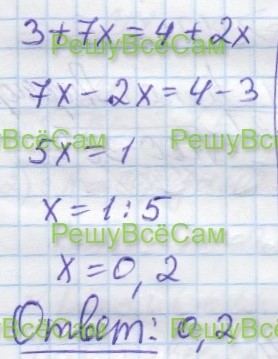 3+7x=4+2x
РешуВсёСам
7x-2x=4-3
ВсёСам РешуВсёСам
5x=1
x=1:5
РешуВсёСам
x=0,2
Ответ: 0,2